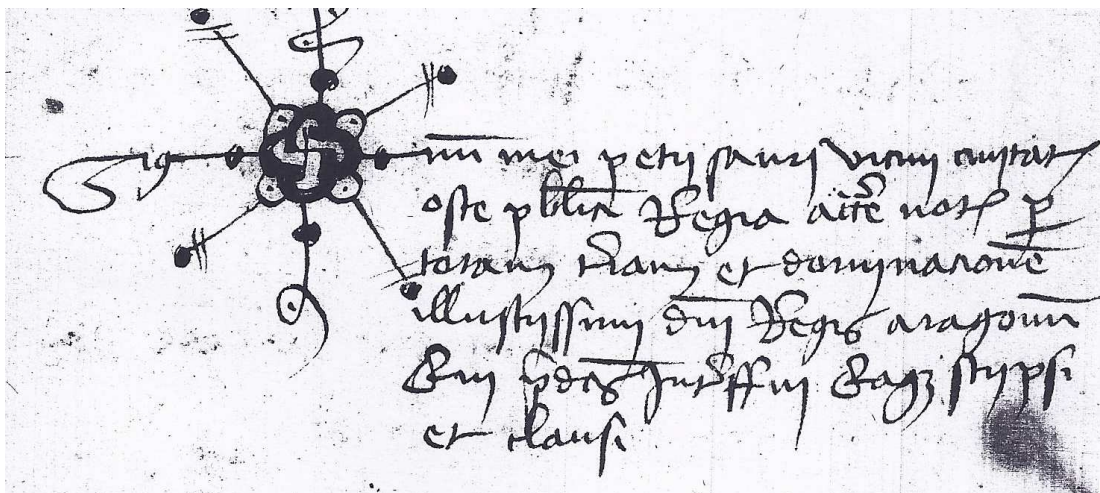 Sig num mei petri sauri vicini civitatis
osce publici Regia auctte not per
totam terram et dominationem
illustrissimi dni Regis aragonum
Qui pdcis Interffui Eaqz scripsi
et clausi